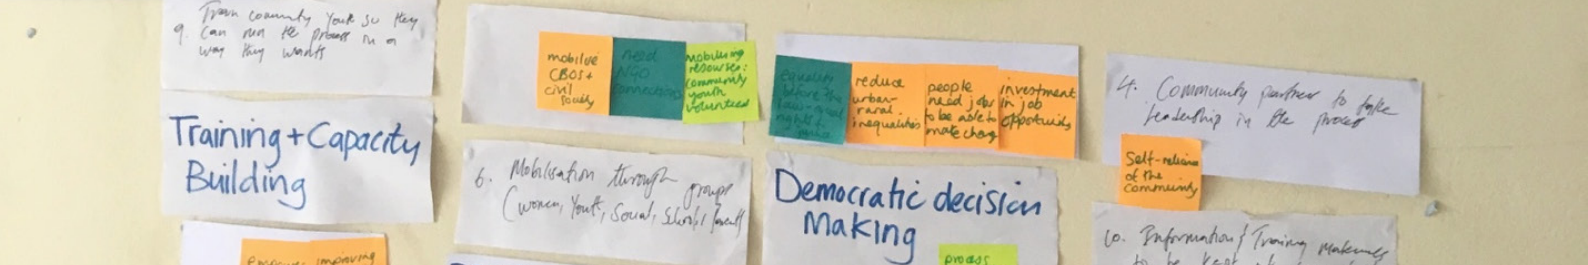 9. Train community Youth so they
can run the process in a
way they wants
Training + Capacity
Building
empower improving
mobilise
CBOs +
civil
society
need
NGO
connections
mobilising
resourses:
community
youth
volunteers
6. Mobilisation through groups
(women, Youth, Social, Schools,
equality
before the
law
reduce
urban-
rural
inequalities
people
need jobs
to be able to
make change
investment
in job
opportunity
Democratic decision
Making
process
4. Community partner to take
leadership in the process
Self-reliance
of the
community
10. Information & Training materials
to be kept